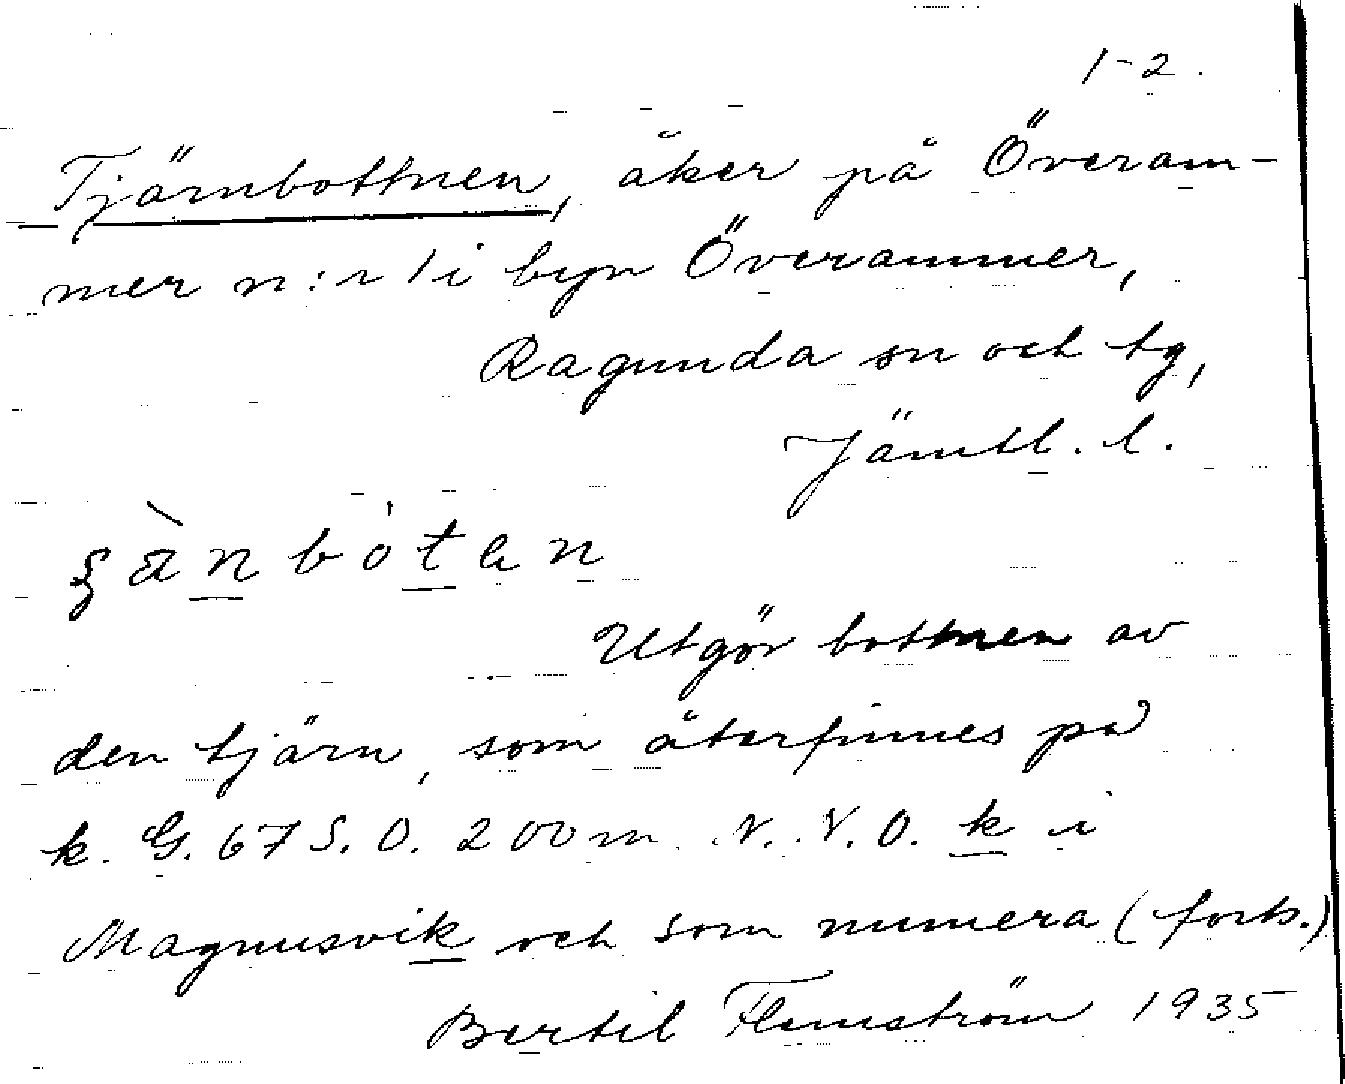 1-2.
Tjärnbottnen, åker på Överam-
mer n:r 1 i byn Överammer,
Ragunda sn och tg,
Jämtl. l.
Utgör bottnen av
den tjärn, som återfinnes på
k. G. 67 S. O. 200 m. N. N. O. k i
Magnusvik och som numera (forts.)
Bertil Flemström 1935